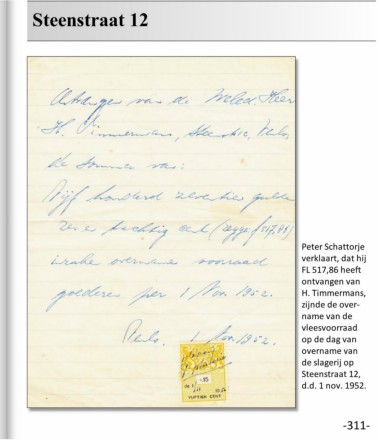 Steenstraat 12
Ontvangen van de Weled. Heer
H. Timmermans, Steenstr., Venlo,
de somma van:
Vijf honderd zeventien gulden
zes en tachtig cent (zegge f 517,86)
inzake overname voorraad
goederen per 1 Nov. 1952.
Venlo, 1 Nov. 1952
VIJFTIEN CENT
Peter Schattorje
verklaart, dat hij
FL 517,86 heeft
ontvangen van
H. Timmermans,
zijnde de over-
name van de
vleesvoorraad
op de dag van
overname van
de slagerij op
Steenstraat 12,
d.d. 1 nov. 1952.
-311-